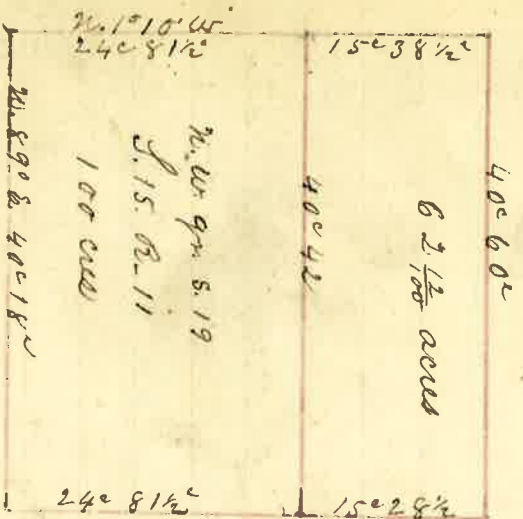 N. 1° 10' W
24c 81½c
15c 38½c
N. 89° E 40c 18c
N. W. qr. S. 19
T. 15. R. 11
100 acres
40c 42
62 12/100 acres
40c 60c
24c 81½c
15c 28½